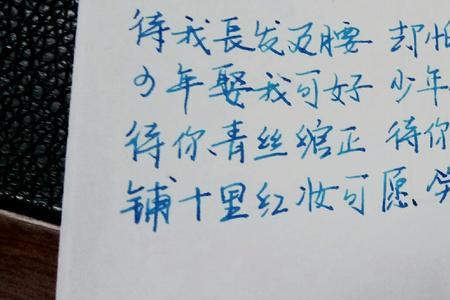 待我長发及腰 却怕
少年娶我可好 少年
待你青丝绾正 待你
铺十里红妆可愿